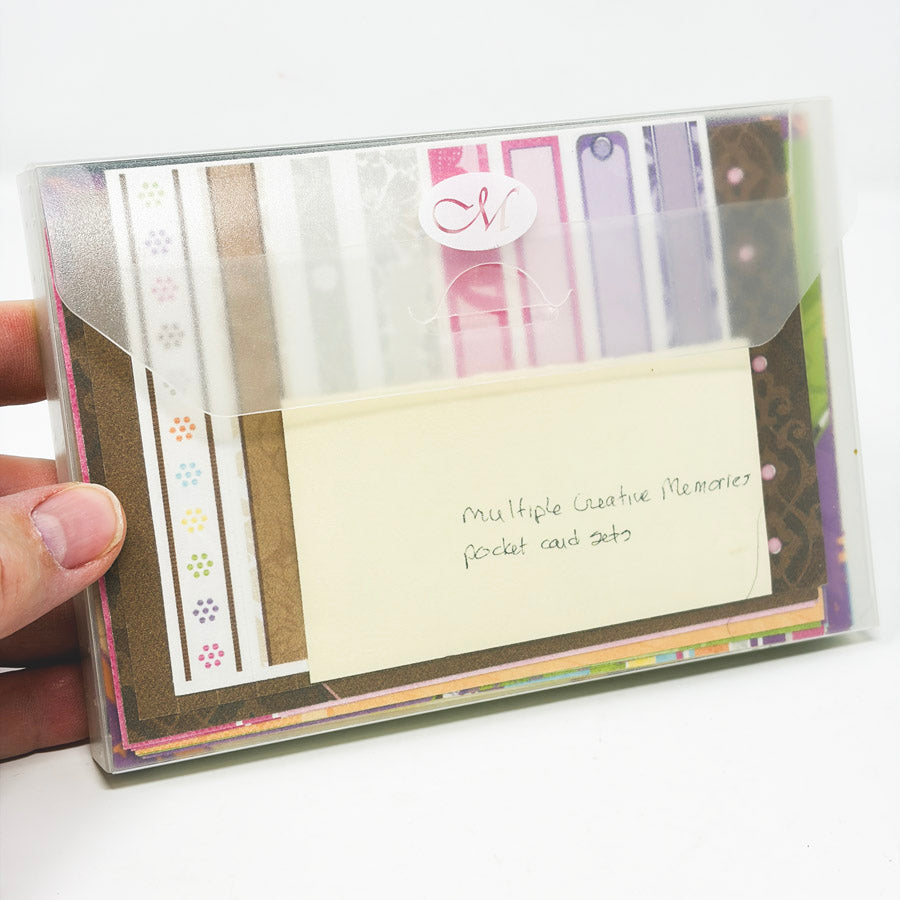 M
multiple Creative Memories
pocket card sets